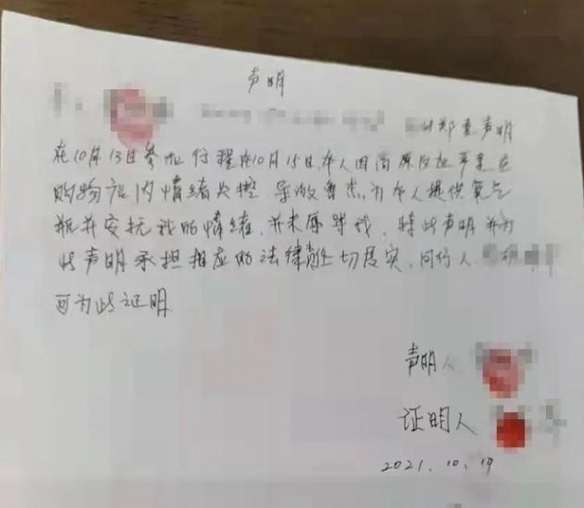 声明
郑重声明
在10月13日参加行程在10月15日本人因高原反应严重在
购物店内情绪失控 导致鲁杰为本人提供氧气
瓶并安抚我的情绪,并未辱骂我,特此声明并为
此声明承担相应的法律责任切属实,同行人
可为此证明
声明人
证明人
2021.10.19